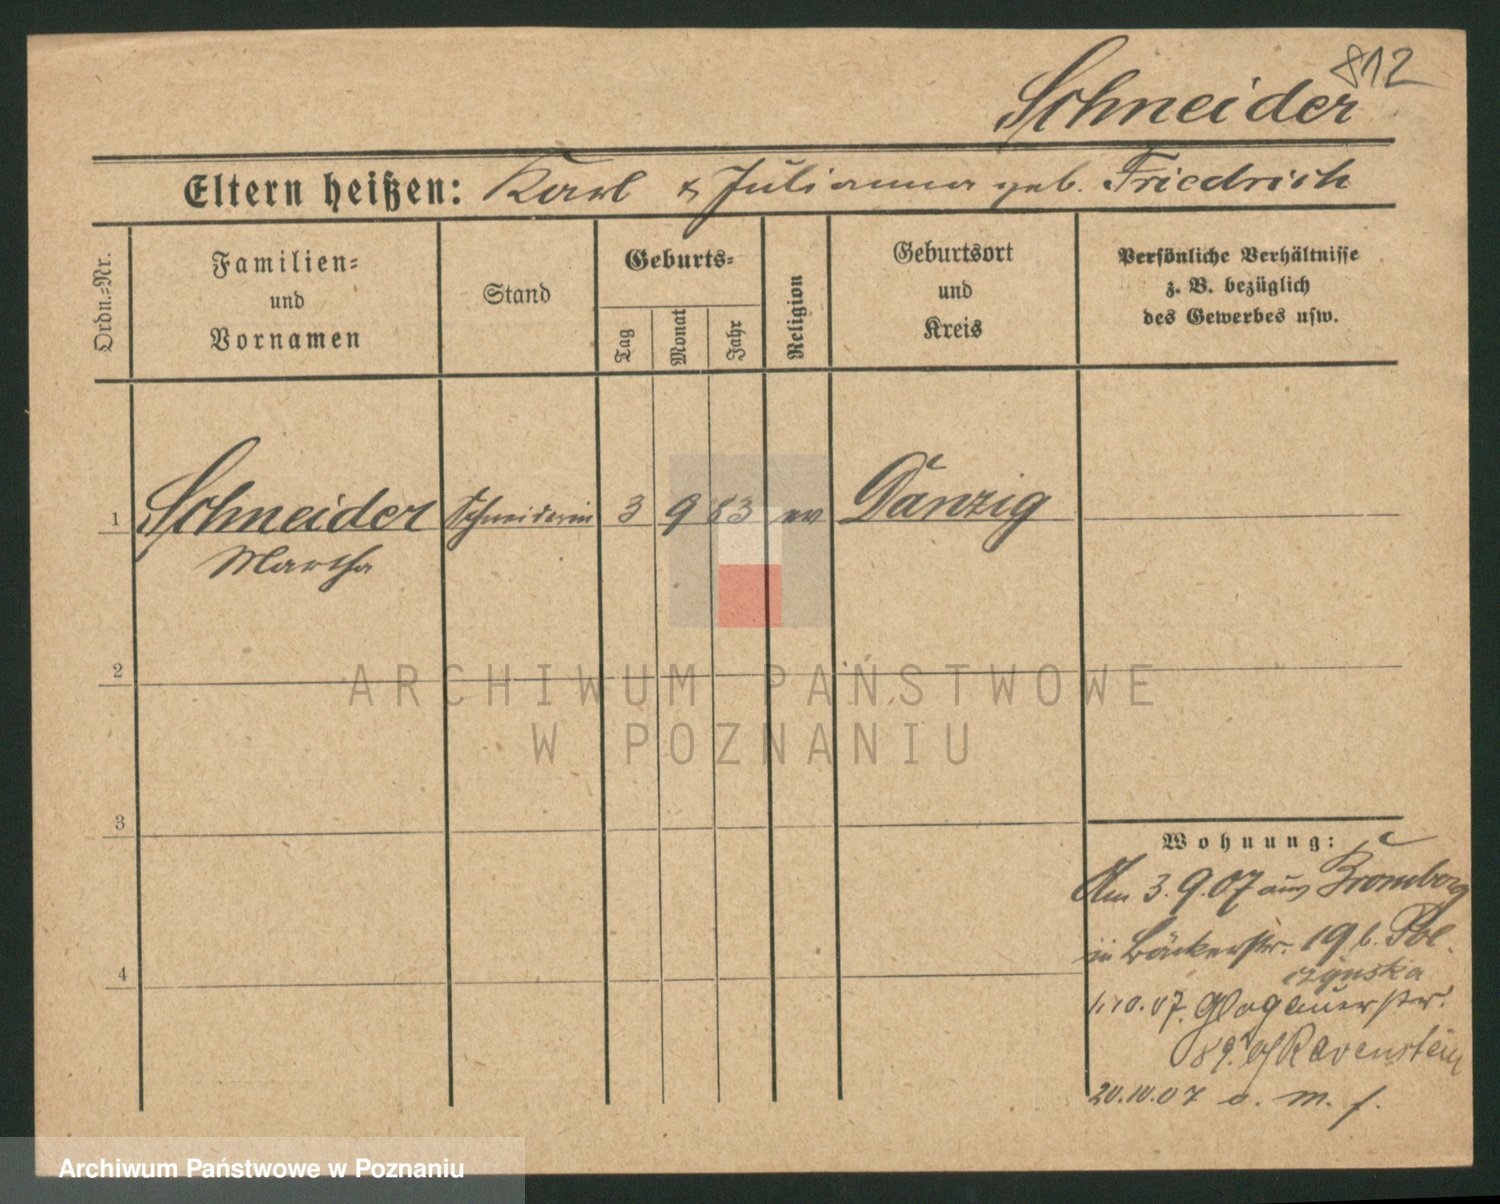 812
Schneider
Eltern heißen: Karl & Julianna geb. Friedrich
Ordn.-Nr.
Familien-
und
Vornamen
Stand
Geburts-
Tag
Monat
Jahr
Religion
Geburtsort
und
Kreis
Persönliche Verhältnisse
z. B. bezüglich
des Gewerbes usw.
1 Schneider Schneiderin 3 9 83 ev Danzig
Martha
2
3
4
ARCHIWUM PAŃSTWOWE
W POZNANIU
Wohnung:
Am 3.9.07 aus Bromberg
in Bäckerstr. 19 b. Pol-
czynska
1.10.07. Glogauerstr.
89. Ravenstein
20.10.07 o. m. f.
Archiwum Państwowe w Poznaniu